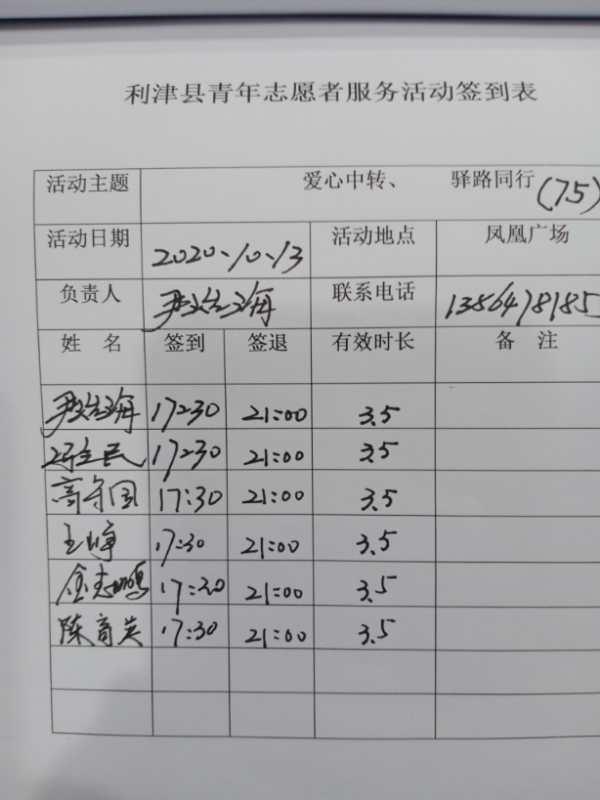 利津县青年志愿者服务活动签到表
活动主题 爱心中转、 驿路同行(75)
活动日期 2020、10、13 活动地点 凤凰广场
负责人 联系电话 1356478185
姓名 签到 签退 有效时长 备注
17:30 21:00 3.5
17:30 21:00 3.5
高守国 17:30 21:00 3.5
王峥 17:30 21:00 3.5
金志鹏 17:30 21:00 3.5
陈育英 17:30 21:00 3.5